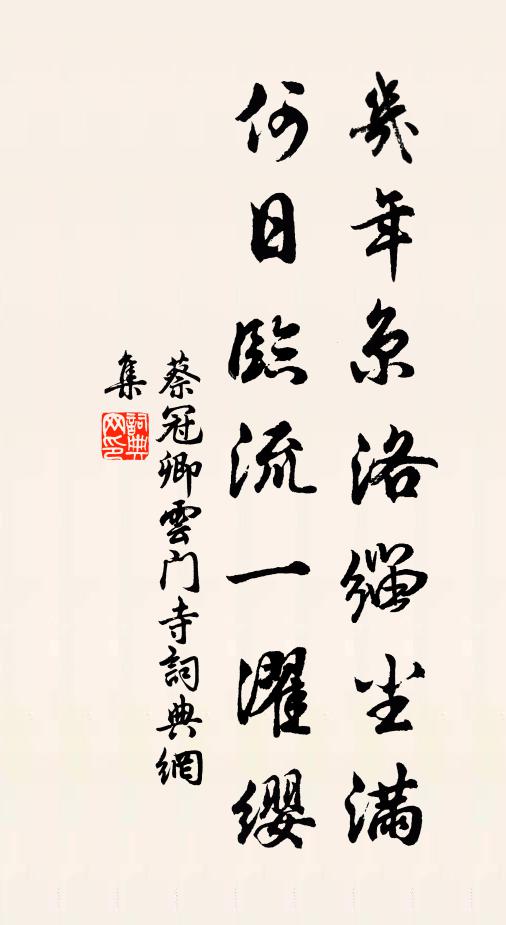 幾年京洛緇尘滿
何日臨流一濯纓
蔡冠卿雲门寺詞典網
集
詞典
网印